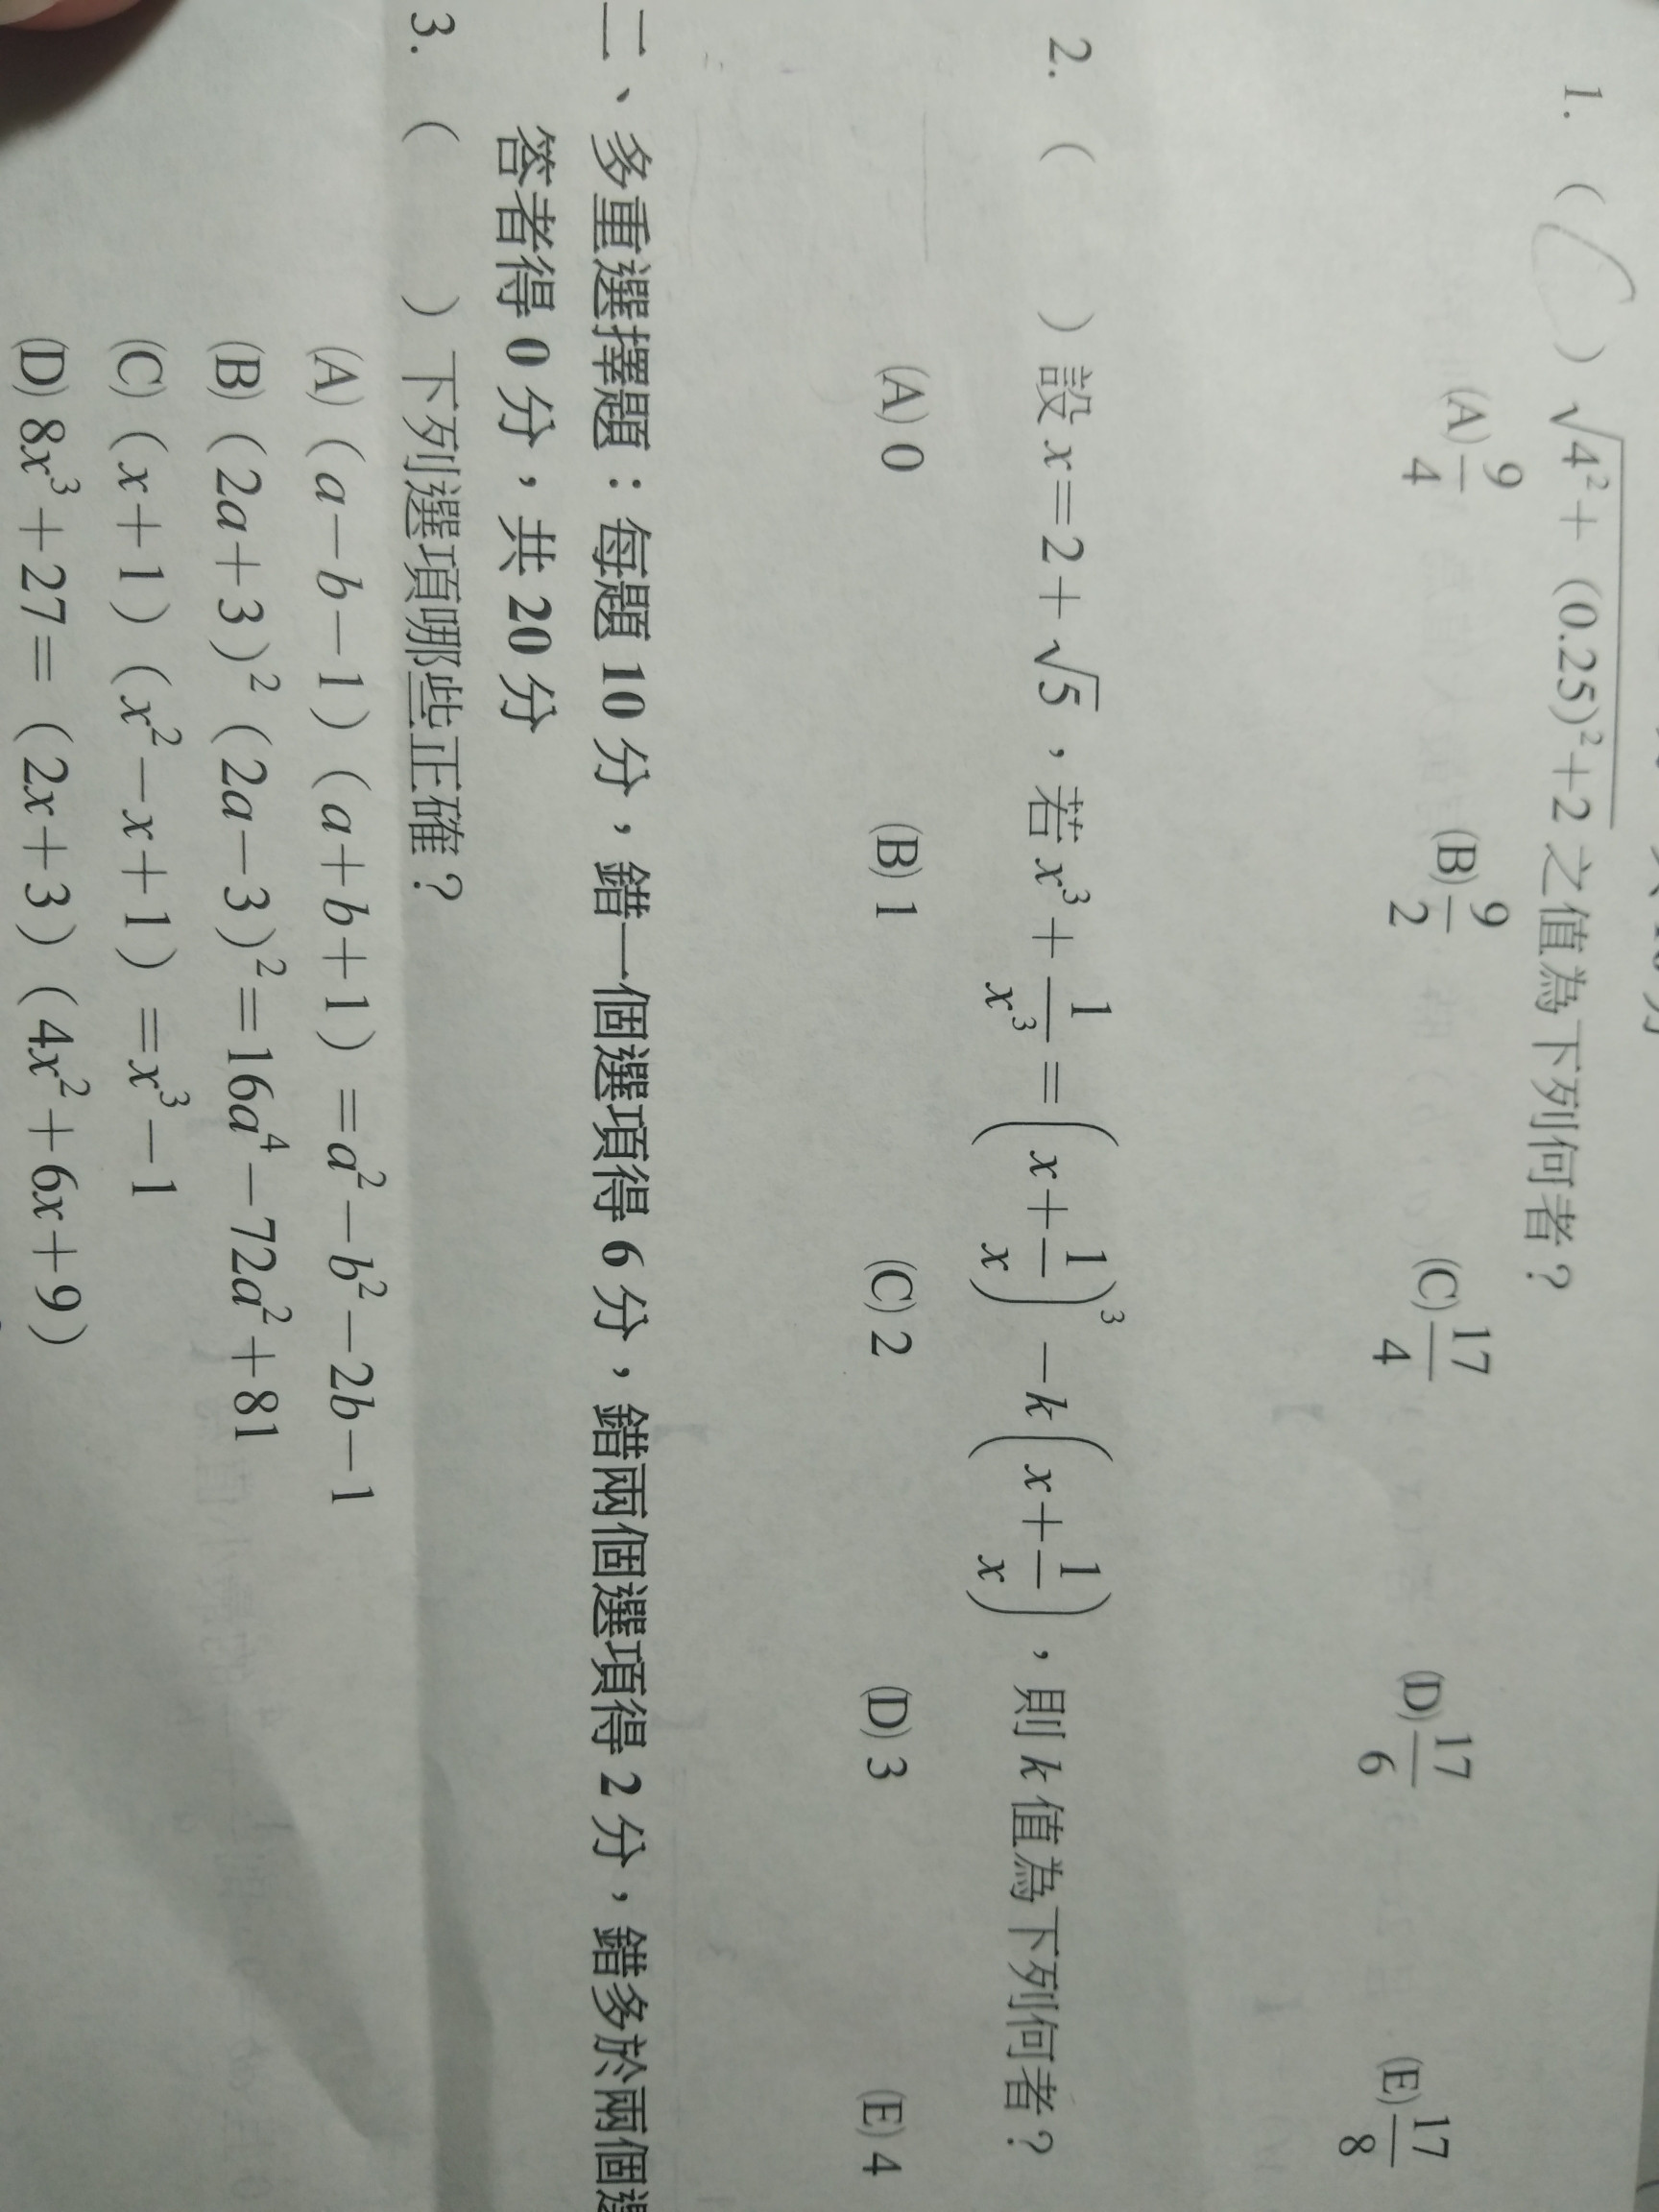 1. ( ) √4²+(0.25)²+2 之值為下列何者？
(A) 9/4 (B) 9/2 (C) 17/4 (D) 17/6 (E) 17/8
2. ( ) 設 x=2+√5，若 x³+1/x³=(x+1/x)³-k(x+1/x)，則 k 值為下列何者？
(A) 0 (B) 1 (C) 2 (D) 3 (E) 4
二、多重選擇題：每題 10 分，錯一個選項得 6 分，錯兩個選項得 2 分，錯多於兩個選
答者得 0 分，共 20 分
3. ( ) 下列選項哪些正確？
(A) (a-b-1)(a+b+1)=a²-b²-2b-1
(B) (2a+3)²(2a-3)²=16a⁴-72a²+81
(C) (x+1)(x²-x+1)=x³-1
(D) 8x³+27=(2x+3)(4x²+6x+9)